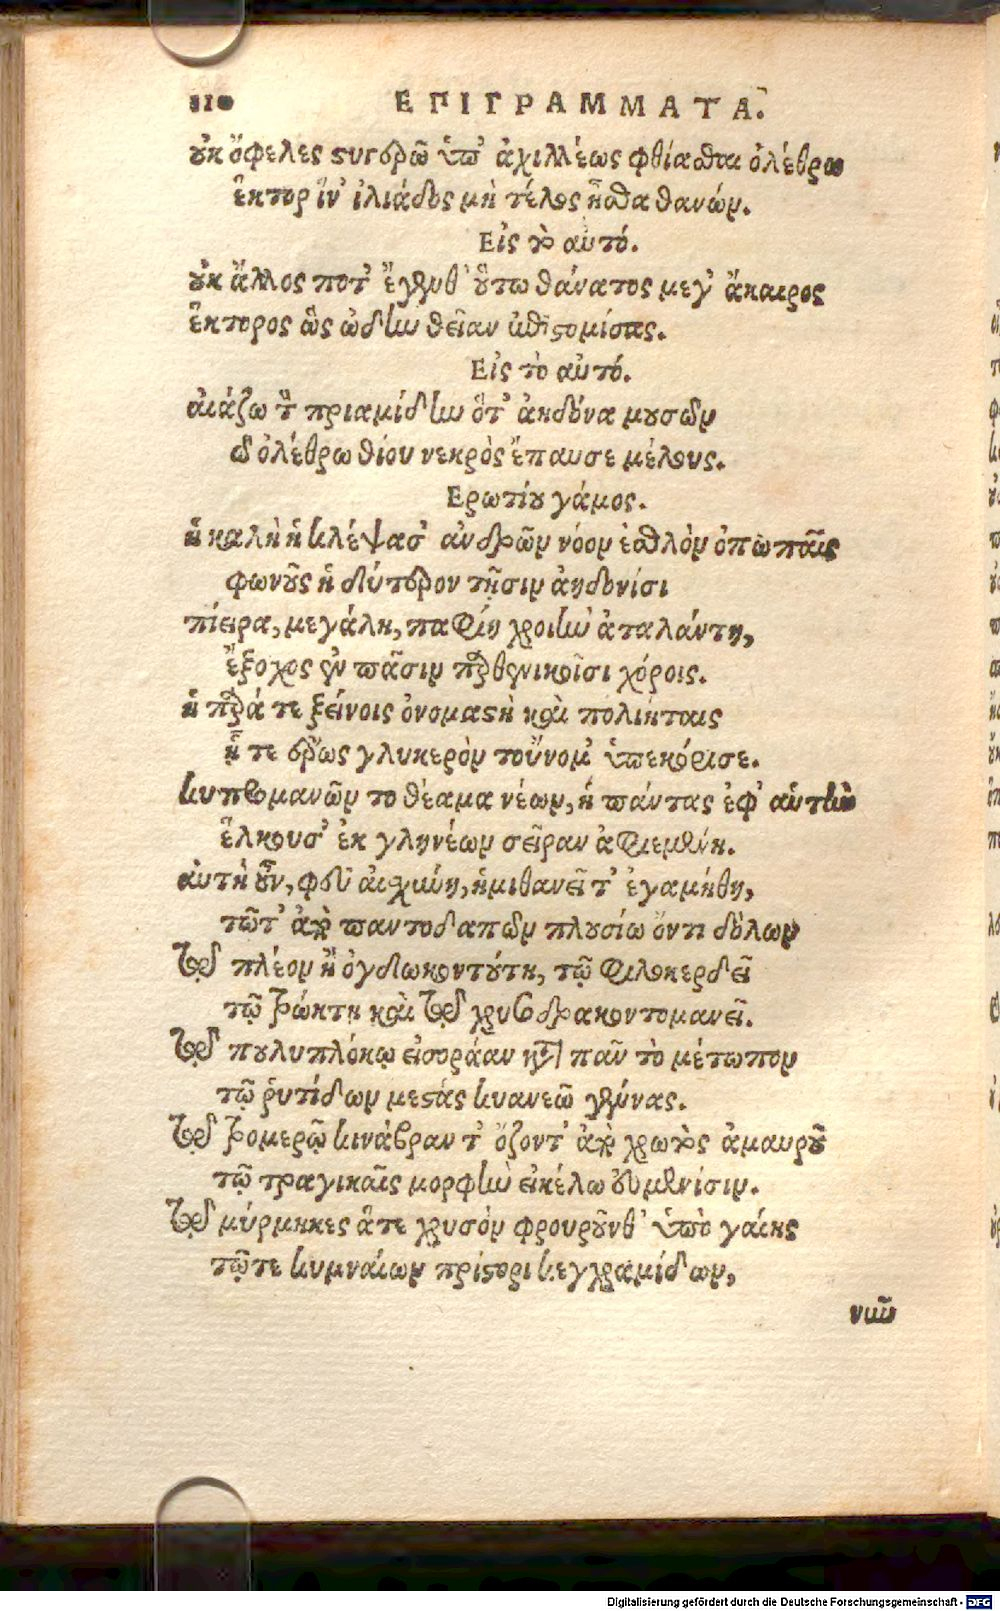 110 ΕΠΙΓΡΑΜΜΑΤΑ.
οὐκ ὄφελες στυγερῶ ὑπ' ἀχιλλέως φθίσθαι ὀλέθρω
ἕκτορ ἵν' ἰλιάδος μὴ τέλος ἦσθα θανών.
Εἰς τὸ αὐτό.
οὐκ ἄλλος ποτ' ἔγενθ' οὕτω θάνατος μεγ' ἄκαιρος
ἕκτορος ὡς ὠδὴν θείαν
Εἰς τὸ αὐτό.
αἰάζω τὸν πριαμίδην ὅτ' ἀηδόνα μουσῶν
ὀλέθρω θείου νεκρὸς ἔπαυσε μέλους.
Ερωτίου γάμος.
ἡ καλὴ ἡ κλέψασ' ἀνδρῶν νόον ἐσθλὸν ὀπωπαῖς
φωνοῦσ' ἡ δεύτερον τῇσιν ἀηδονίσι
πίειρα, μεγάλη, παφίη χροιὴν ἀταλάντη,
ἔξοχος ἐν πᾶσιν παρθενικοῖσι χόροις.
ἡ παρά τε ξείνοις ὀνομαστὴ καὶ πολιήταις
ᾗ τε ἔρως γλυκερὸν τοὔνομ' ὑπεκόρισε.
κυπρομανῶν το θέαμα νέων, ἡ πάντας ἐφ' αὑτὴν
ἕλκουσ' ἐκ γληνέων σεῖραν ἀφιεμένη.
αὐτὴ οὖν, φεῦ αἰσχύνη, ἡμιθανεῖ τ' ἐγαμήθη,
τῶτ' ἀπὸ παντοδαπῶν πλουσίω ὄντι δόλων
τῷδε πλέον ἢ ὀγδωκοντούτη, τῷ φιλοκερδεῖ
τῷ τρώκτη καὶ τῷδε χρυσοδρακοντομανεῖ.
τῷδε πουλυπλόκῳ εἰσοράαν κατὰ πᾶν τὸ μέτωπον
τῷ ῥυτίδων μεστὰς κυανεῶ γενύνας.
τῷδε τρομερῷ κινάβραν τ' ὄζοντ' ἀπὸ χρωτὸς ἀμαυροῦ
τῷ τραγικαῖς μορφὴν εἰκέλω εὐμενίσιν.
τῷδε μύρμηκες ἅτε χρυσὸν φρουροῦνθ' ὑπὸ γαίης
τῷτε κυμναίων πρίστορι κεγχραμίδων,
νῦν
Digitalisierung gefördert durch die Deutsche Forschungsgemeinschaft - DFG